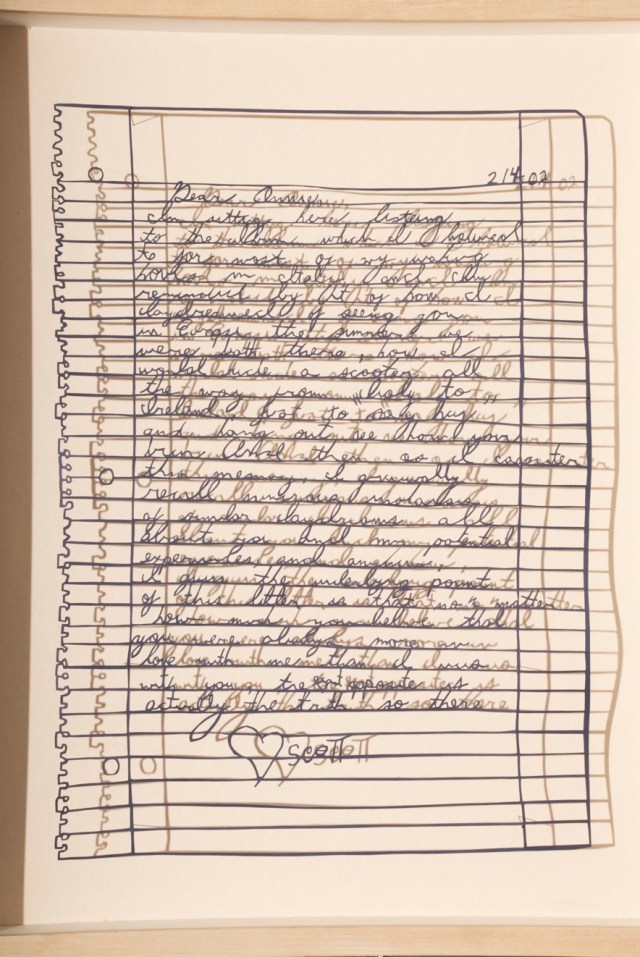 2/4/02
Dear
sitting here listening
to the album which I listened
to for most of my waking
hours in Italy and I
reminded by it of how I
daydreamed of seeing you
in Europe the summer we
were both there, how I
would ride a scooter all
the way from Italy to
Ireland just to say hey
and hang out see how you
been. And then as I
this memory, I
recall numerous
of similar daydreams all
about you and potential
experiences, and
I guess the underlying point
of this letter is that no matter
how much you believe that
you were always more in
love with me than I was
with you, the exact opposite is
actually the truth so there
Scott